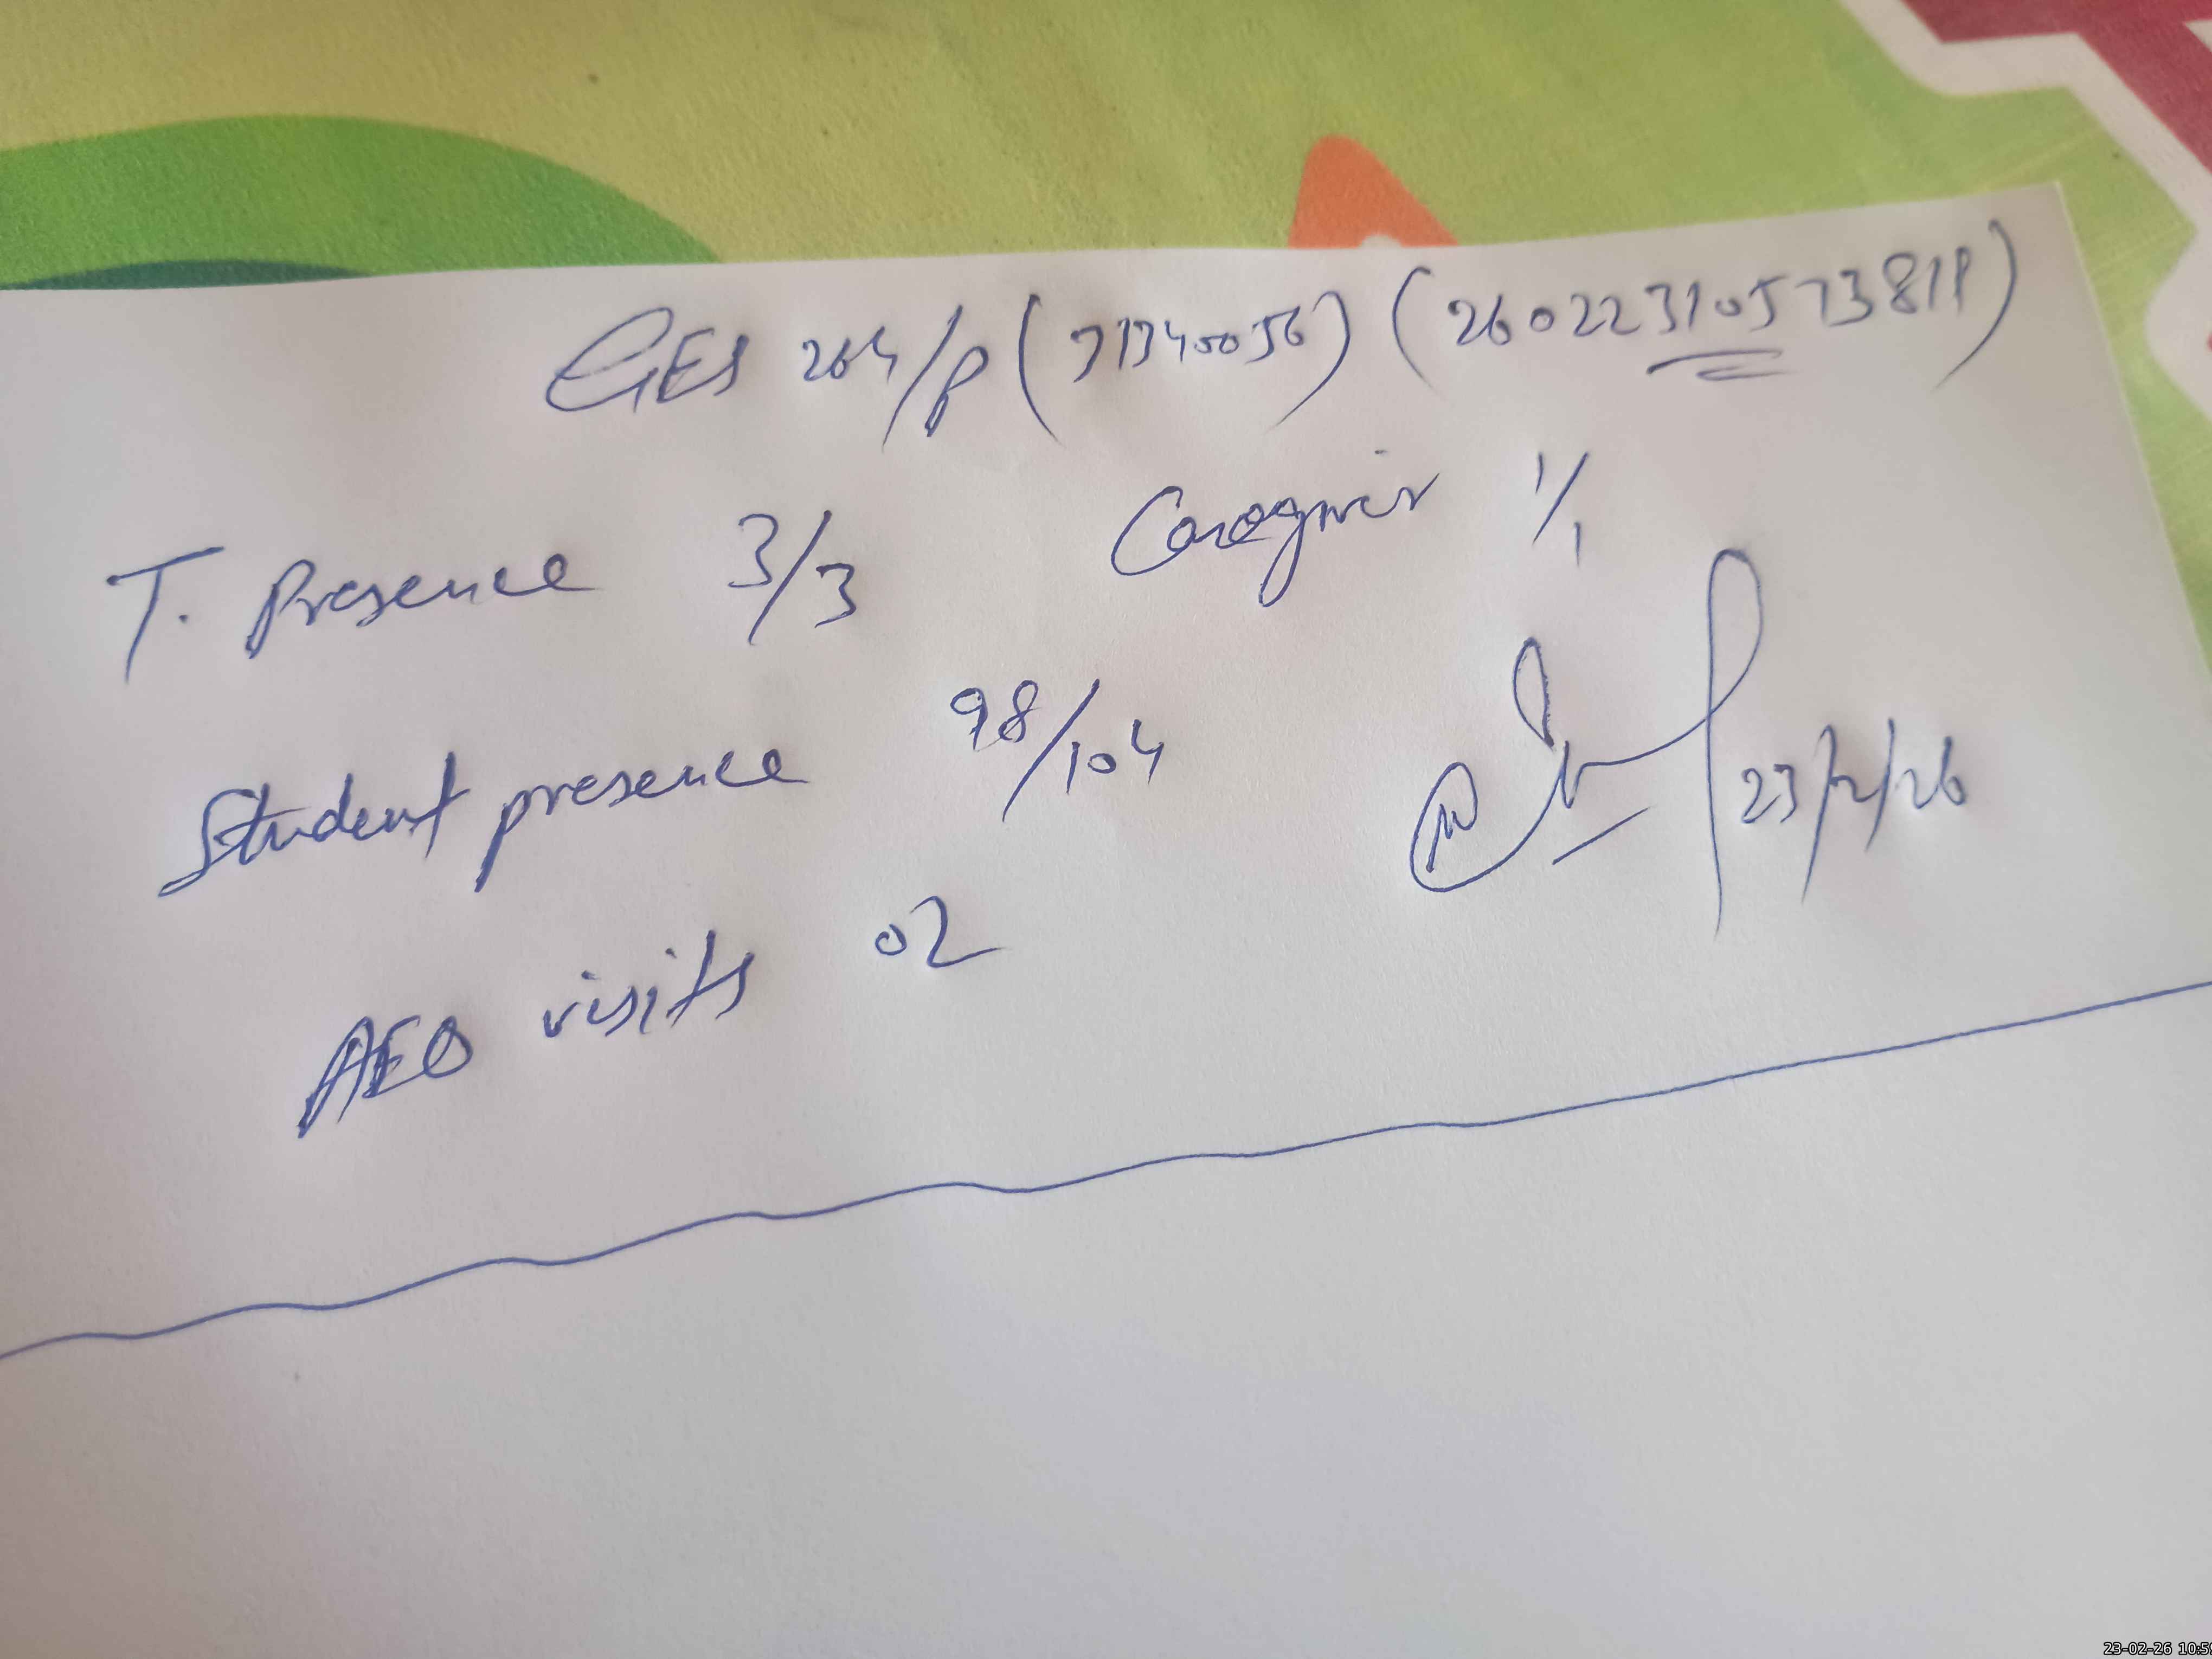 GES 264/P (31340056) (26022310573811)
T. Presence 3/3 Caregiver 1/1
Student presence 98/104
23/2/26
AEO visits 02
23-02-26 10:59